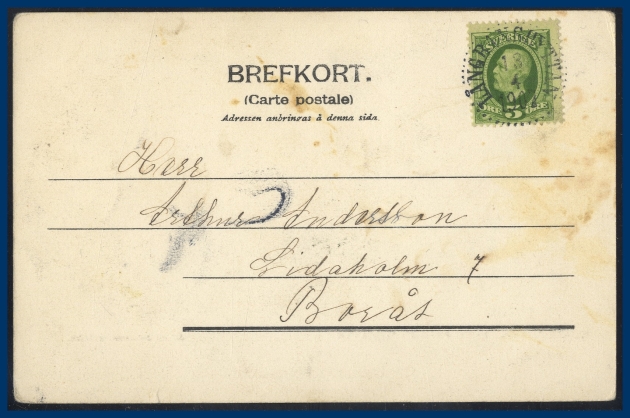 BREFKORT.
(Carte postale)
Adressen anbringas å denna sida.
SVERIGE
5 ÖRE
Herr
Arthur Andersson
Lidaholm 7
Borås